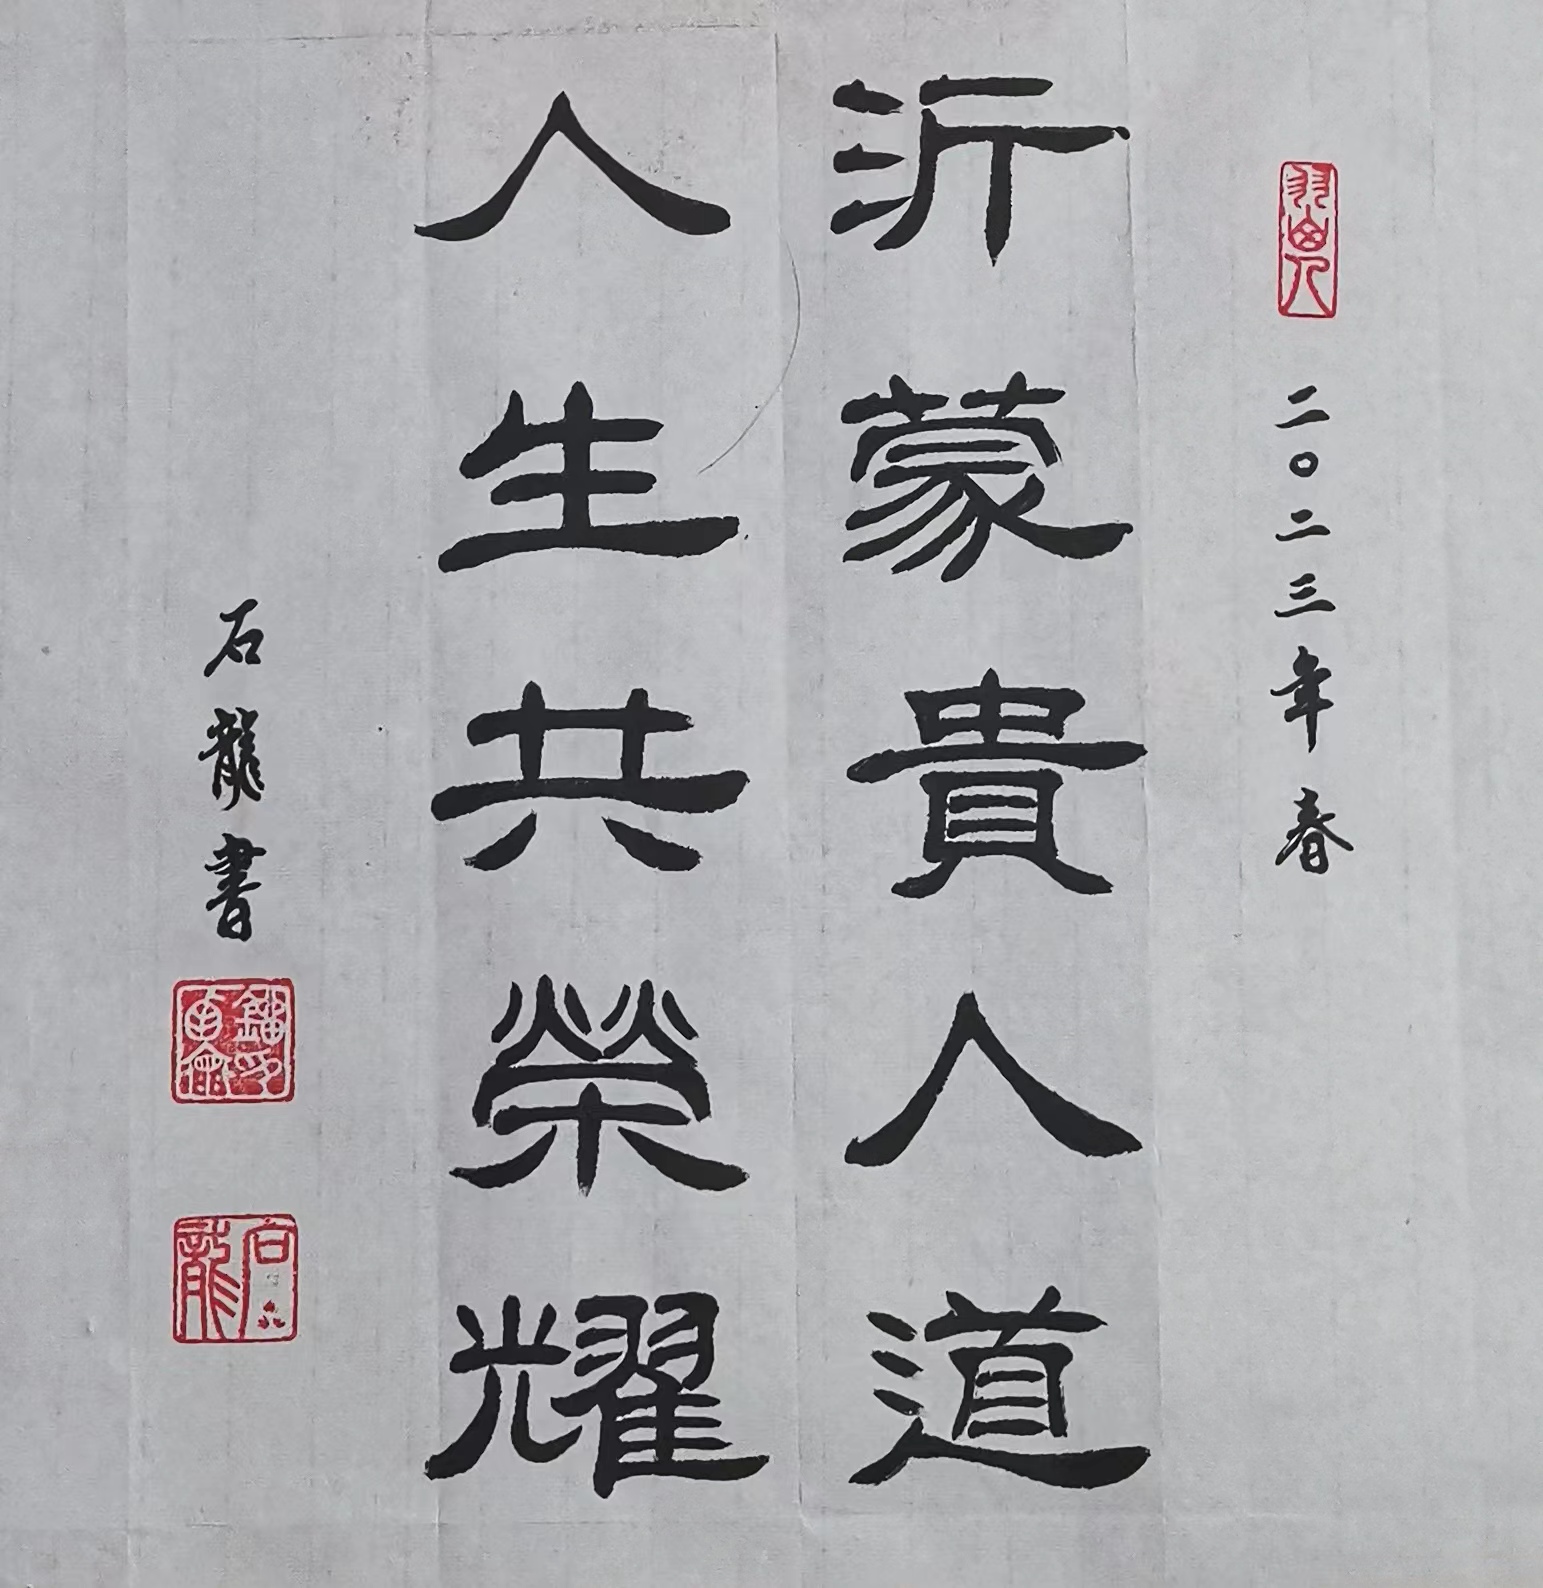 二〇二三年春
沂蒙貴人道
人生共榮耀
石龍書
石龍